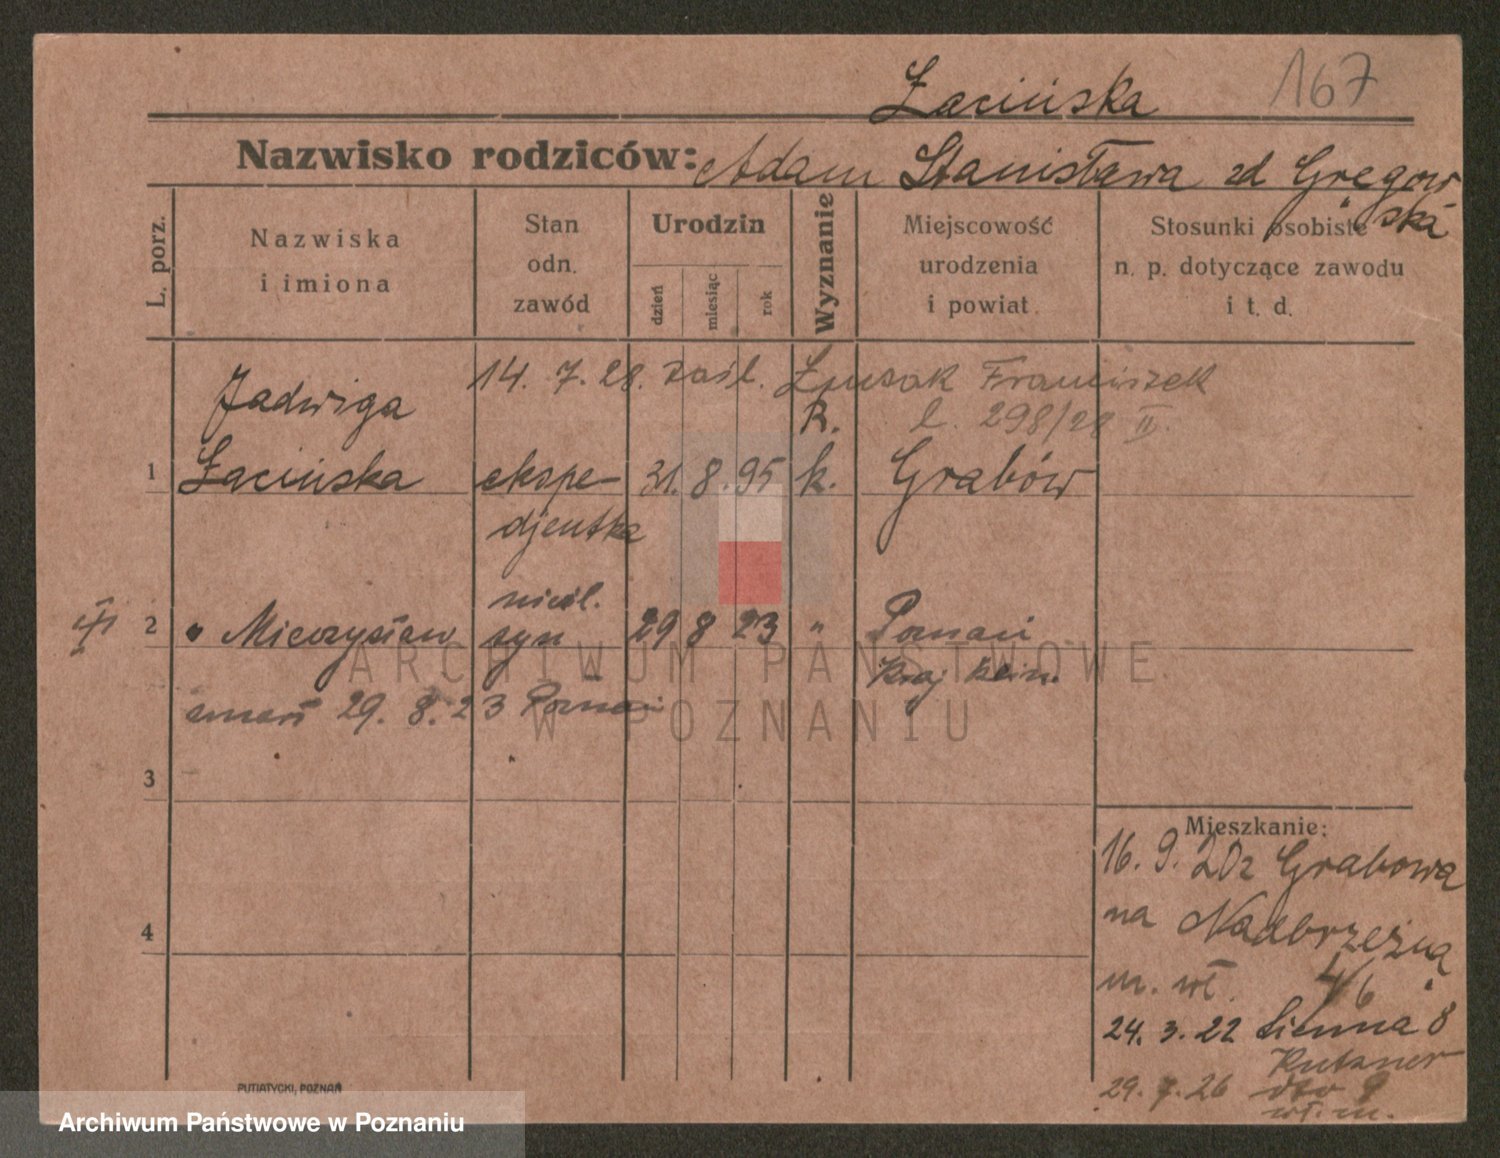 Łacińska 167
Nazwisko rodziców: Adam Stanisława zd Gręgow
ska
L. porz.
Nazwiska
i imiona
Stan
odn.
zawód
Urodzin
dzień
miesiąc
rok
Wyznanie
Miejscowość
urodzenia
i powiat
Stosunki osobiste
n. p. dotyczące zawodu
i t. d.
14. 7. 28. zaśl. Franciszek
Jadwiga R. l. 298/28 II.
1 Łacińska ekspe- 31. 8. 95 k. Grabów
djentka
nieśl.
2 " Mieczysław syn 29 8 23 " Poznań
zmarł 29. 8. 23 Poznań
3
4
Mieszkanie:
16. 9. 20 z Grabowa
na Nadbrzeżną
m. wł. 4/6
24. 3. 22 Sienna 8
Kutzner
29. 7. 26 dto 9
wł. m.
PUTIATYCKI, POZNAŃ
ARCHIWUM PAŃSTWOWE
W POZNANIU
Archiwum Państwowe w Poznaniu